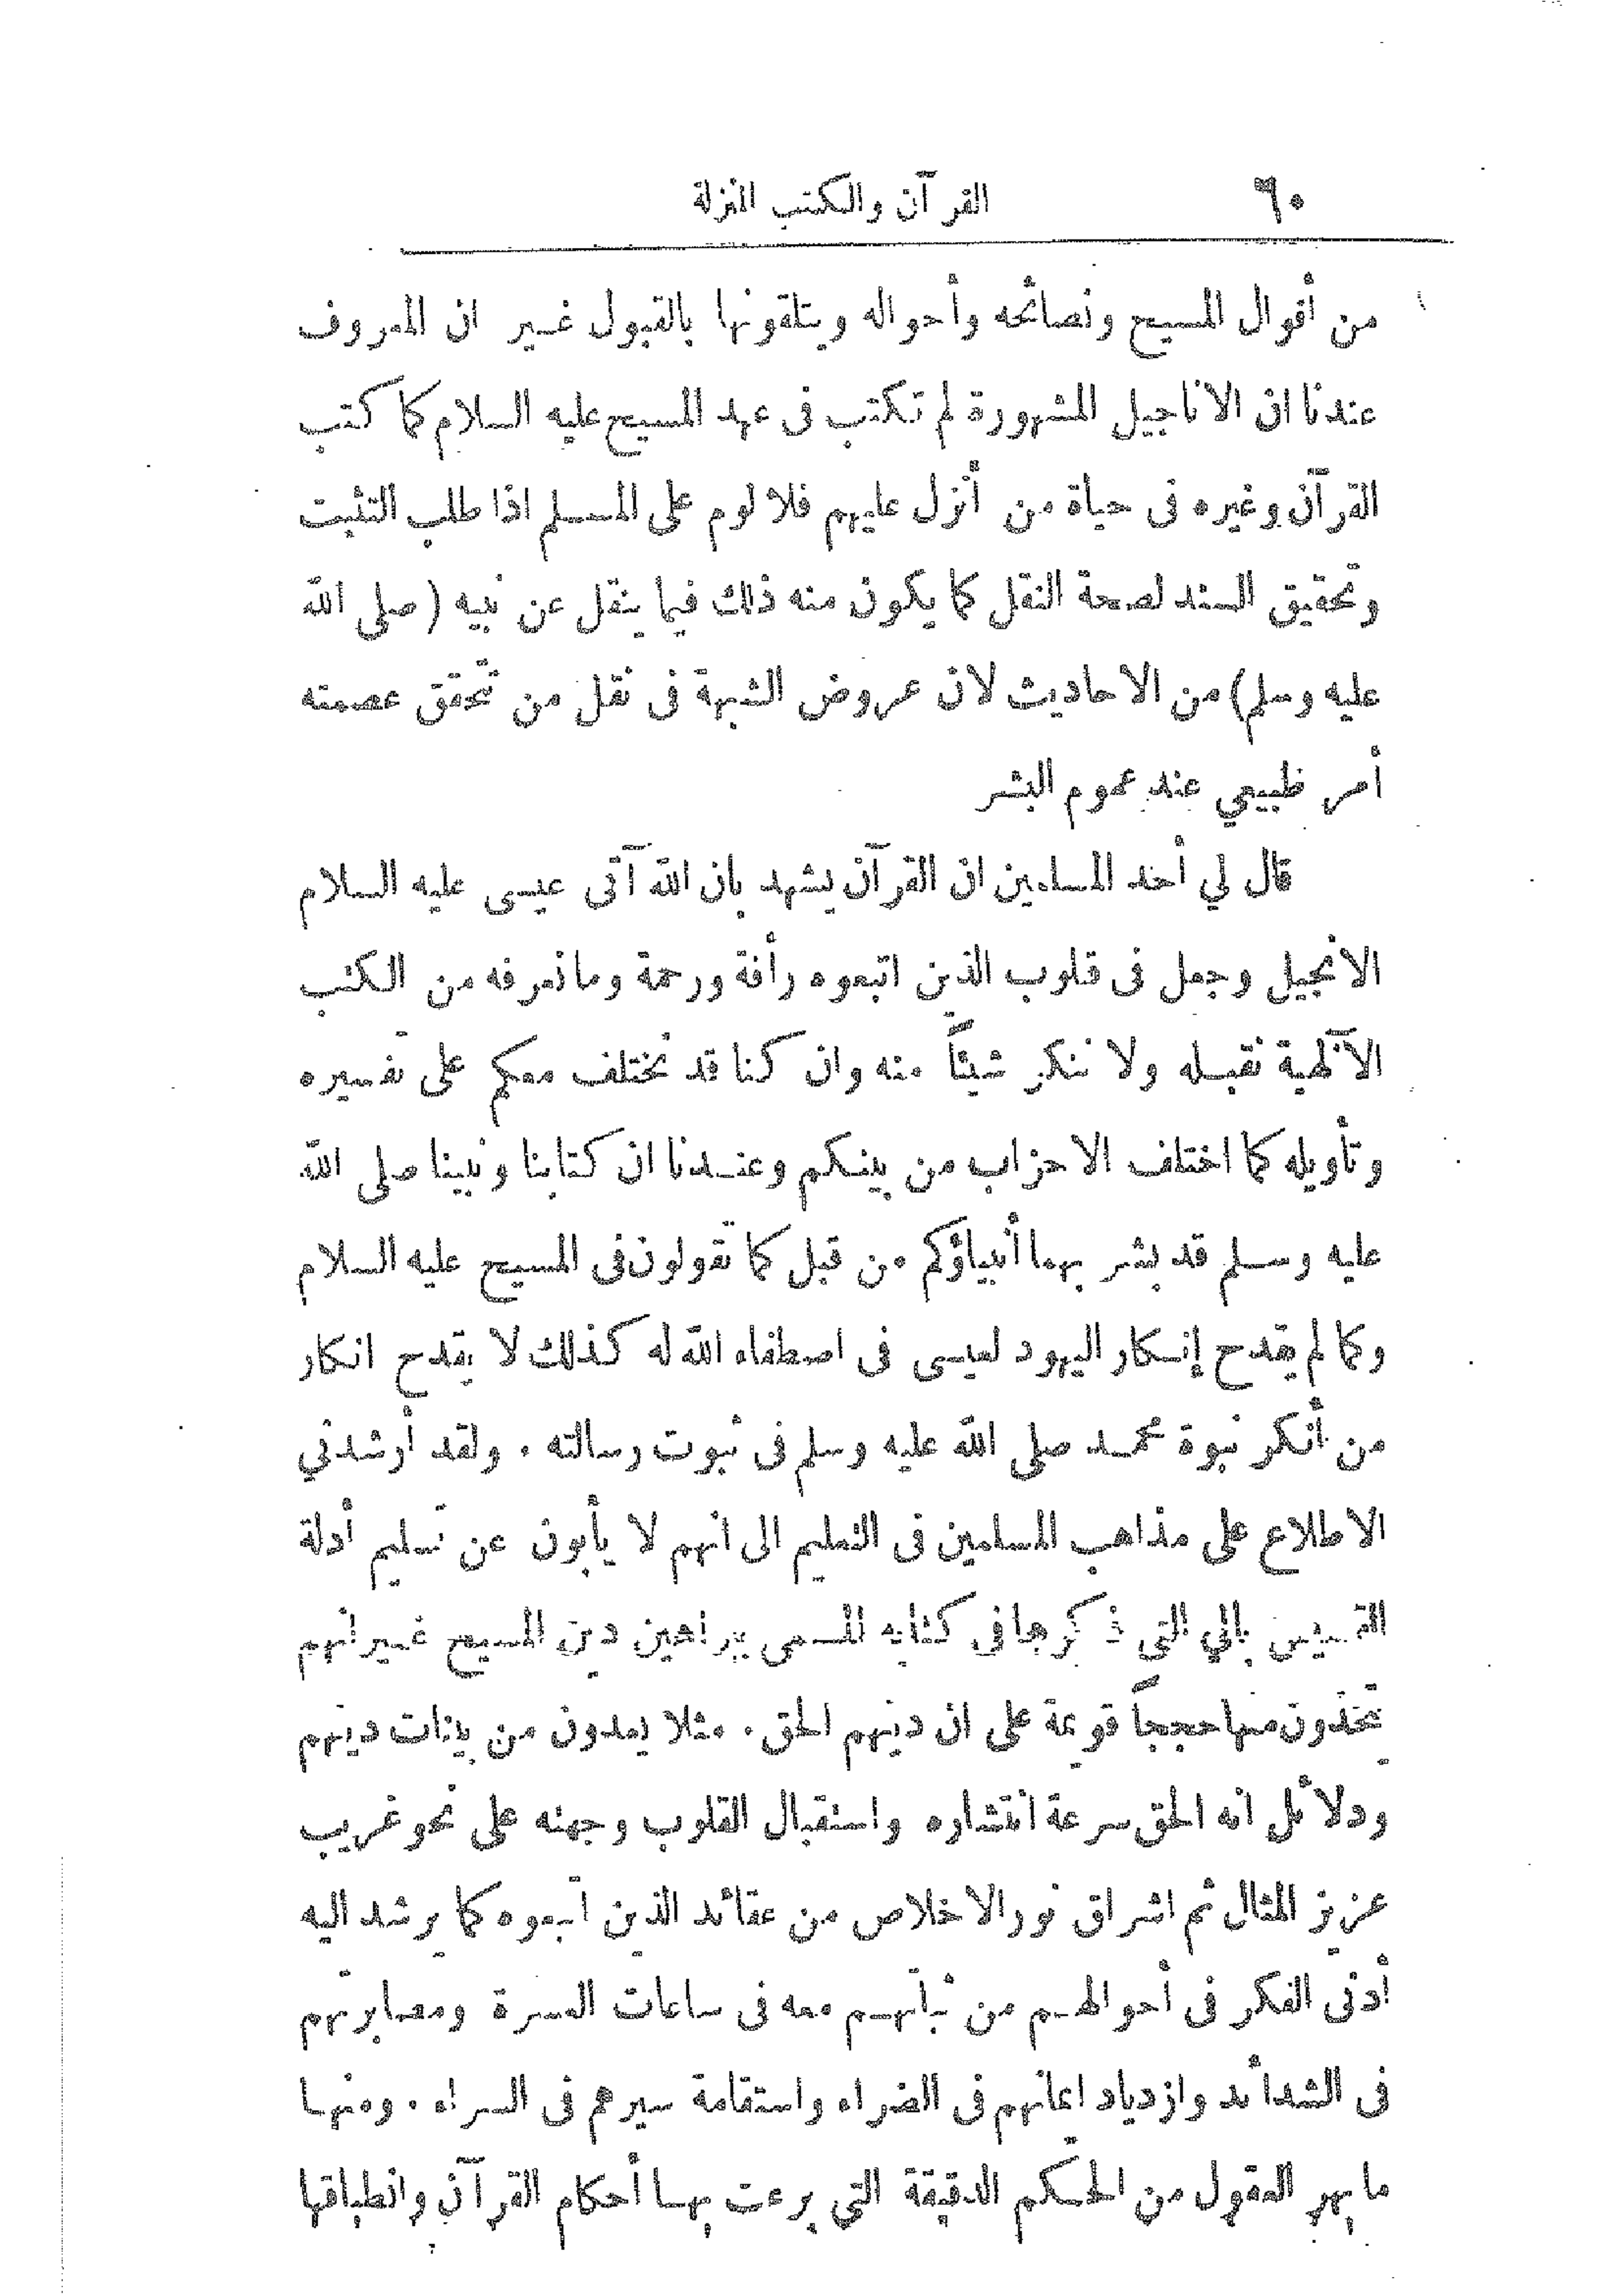 ٦٠ القرآن والكتب المنزلة
من أقوال المسيح ونصائحه وأحواله ويتلقونها بالقبول غير ان المعروف
عندنا ان الاناجيل المشهورة لم تكتب فى عهد المسيح عليه السلام كما كتب
القرآن وغيره فى حياة من أنزل عليهم فلا لوم على المسلم اذا طلب التثبت
وتحقيق السند لصحة النقل كما يكون منه ذلك فيما ينقل عن نبيه (صلى الله
عليه وسلم) من الاحاديث لان عروض الشبهة فى نقل من تحقق عصمته
أمر طبيعي عند عموم البشر
قال لي أحد المسلمين ان القرآن يشهد بان الله آتى عيسى عليه السلام
الانجيل وجعل فى قلوب الذين اتبعوه رأفة ورحمة وما نعرفه من الكتب
الآلهية نقبله ولا ننكر شيئاً منه وان كنا قد نختلف معكم على تفسيره
وتأويله كما اختلف الاحزاب من بينكم وعندنا ان كتابنا ونبينا صلى الله
عليه وسلم قد بشر بهما أنبياؤكم من قبل كما تقولون فى المسيح عليه السلام
وكما لم يقدح إنكار اليهود لعيسى فى اصطفاء الله له كذلك لا يقدح انكار
من أنكر نبوة محمد صلى الله عليه وسلم فى ثبوت رسالته . ولقد أرشدني
الاطلاع على مذاهب المسلمين فى التعليم الى انهم لا يأبون عن تسليم أدلة
القسيس بالي التى ذكرها فى كتابه المسمى ببراهين دين المسيح غير انهم
يتخذون منها حججاً قويمة على ان دينهم الحق . مثلا يعدون من بينات دينهم
ودلائل انه الحق سرعة انتشاره واستقبال القلوب وجهته على نحو غريب
عزيز المثال ثم اشراق نور الاخلاص من عقائد الذين اتبعوه كما يرشد اليه
أدنى الفكر فى أحوالهم من ثباتهم معه فى ساعات العسرة ومصابرتهم
فى الشدائد وازدياد ايمانهم فى الضراء واستقامة سيرهم فى السراء . ومنها
ما بهر العقول من الحكم الدقيقة التي برعت بها أحكام القرآن وانطباقها